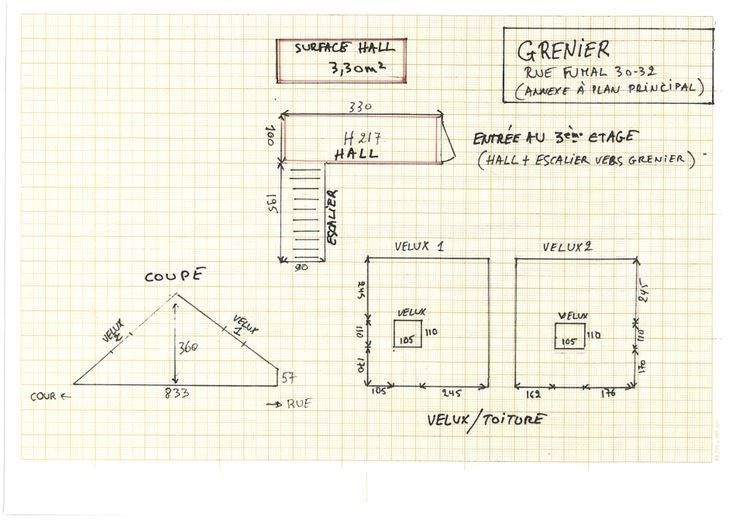 SURFACE HALL
3,30m²
GRENIER
RUE FUMAL 30-32
(ANNEXE À PLAN PRINCIPAL)
330
100
H 217
HALL
ENTRÉE AU 3ème ETAGE
(HALL + ESCALIER VERS GRENIER)
195
ESCALIER
90
COUPE
VELUX 2
VELUX 1
360
57
833
COUR ←
→ RUE
VELUX 1
245
VELUX
110
105
110
170
105
245
VELUX 2
245
VELUX
110
105
110
170
162
176
VELUX/TOITURE